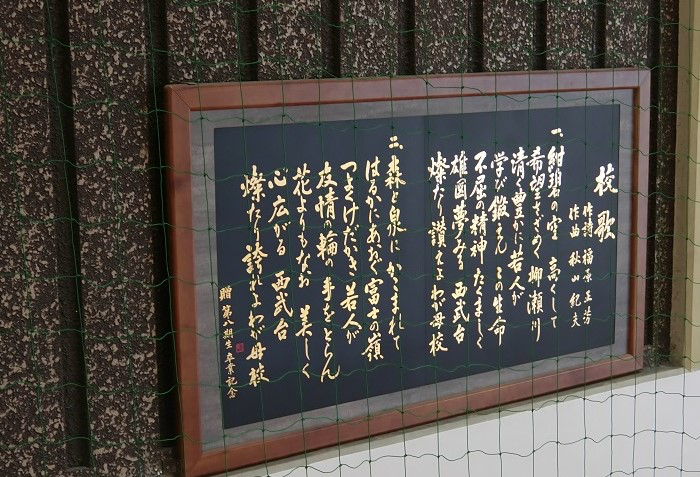 校歌
作詩 福原正芳
作曲 秋山紀夫
一、紺碧の空 高くして
希望さざめく 柳瀬川
清く豊かに若人が
学び鍛えん この生命
不屈の精神 たくましく
雄図夢みる 西武台
燦たり讃えよ わが母校
二、森と泉に かこまれて
はるかにあおぐ 富士の嶺
つよくけだかき 若人が
友情の輪の 手をとらん
花よりもなお 美しく
心広がる 西武台
燦たり誇れよ わが母校
贈 第八期生 卒業記念